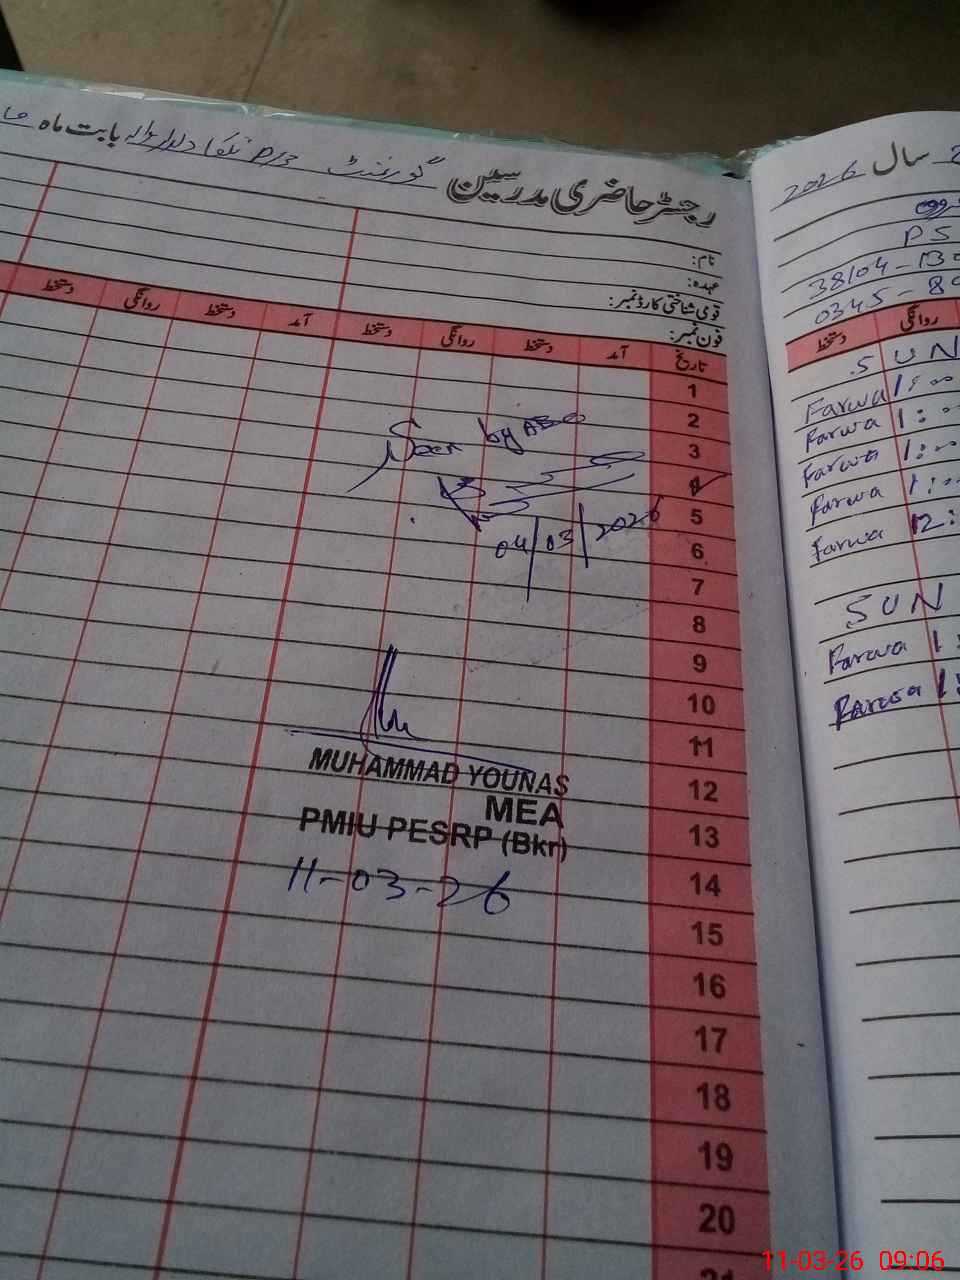 رجسٹر حاضری مدرسین گورنمنٹ بابت ماہ
نام:
عہدہ:
قومی شناختی کارڈ نمبر:
فون نمبر:
تاریخ آمد دستخط روانگی دستخط آمد دستخط روانگی دستخط
1
2
3
4
5
6
7
8
9
10
11
12
13
14
15
16
17
18
19
20
21
Seen by
04/03/2026
MUHAMMAD YOUNAS
MEA
PMIU PESRP (Bkr)
11-03-26
سال 2026
PS
38104-130
0345-80
روانگی دستخط
SUN
Farwa 1:00
Farwa 1:00
Farwa 1:00
Farwa 1:00
Farwa 12:
SUN
Farwa 1:
Farwa 1:
11-03-26 09:06